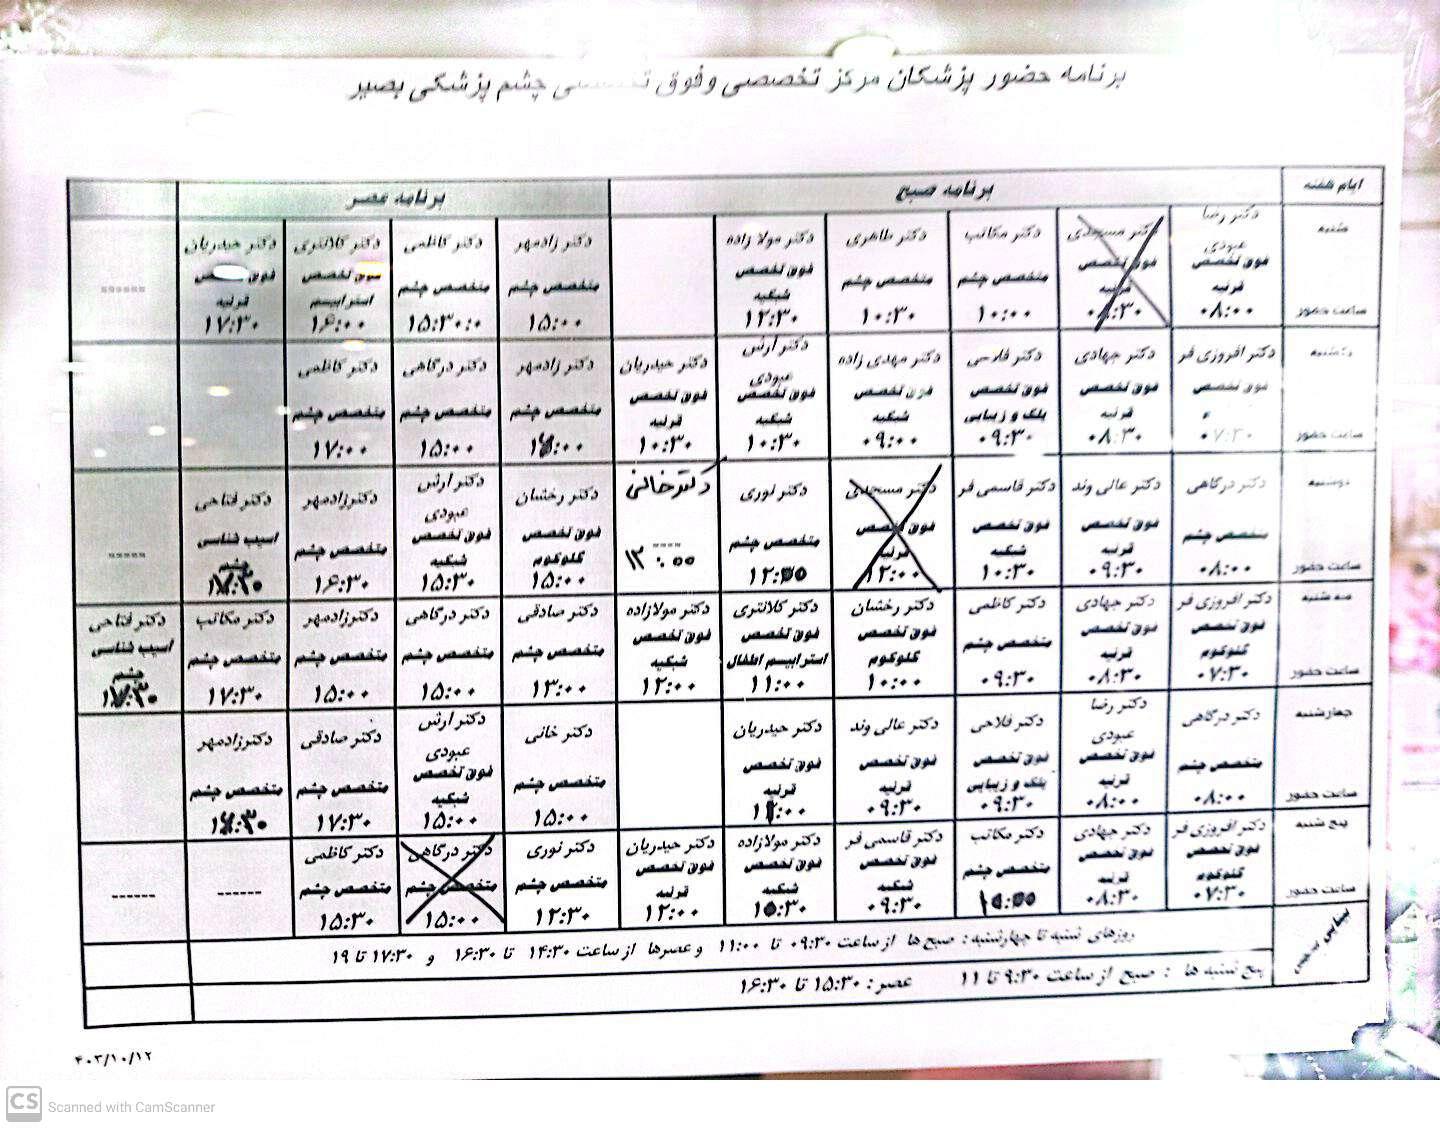 برنامه حضور پزشکان مرکز تخصصی و فوق تخصصی چشم پزشکی بصیر
ایام هفته برنامه صبح برنامه عصر
شنبه
ساعت حضور
دکتر رضا
عبودی
فوق تخصص
قرنیه
۰۸:۰۰
دکتر مسجدی
فوق تخصص
قرنیه
۰۸:۳۰
دکتر مکاتب
متخصص چشم
۱۰:۰۰
دکتر طاهری
متخصص چشم
۱۰:۳۰
دکتر مولا زاده
فوق تخصص
شبکیه
۱۲:۳۰
دکتر زادمهر
متخصص چشم
۱۵:۰۰
دکتر کاظمی
متخصص چشم
۱۵:۳۰:۰
دکتر کلانتری
فوق تخصص
استرابیسم
۱۶:۰۰
دکتر حیدریان
فوق تخصص
قرنیه
۱۷:۳۰
------
یکشنبه
ساعت حضور
دکتر افروزی فر
فوق تخصص
۰۷:۳۰
دکتر جهادی
فوق تخصص
قرنیه
۰۸:۳۰
دکتر فلاحی
فوق تخصص
پلک و زیبایی
۰۹:۳۰
دکتر مهدی زاده
فوق تخصص
شبکیه
۰۹:۰۰
دکتر ارش
عبودی
فوق تخصص
شبکیه
۱۰:۳۰
دکتر حیدریان
فوق تخصص
قرنیه
۱۰:۳۰
دکتر زادمهر
متخصص چشم
دکتر درگاهی
متخصص چشم
۱۵:۰۰
دکتر کاظمی
متخصص چشم
۱۷:۰۰
دوشنبه
ساعت حضور
دکتر درگاهی
متخصص چشم
۰۸:۰۰
دکتر عالی وند
فوق تخصص
قرنیه
۰۹:۳۰
دکتر قاسمی فر
فوق تخصص
شبکیه
۱۰:۳۰
دکتر مسجدی
فوق تخصص
قرنیه
۱۲:۰۰
دکتر نوری
متخصص چشم
دکتر خانی
----
۱۳:۰۰
دکتر رخشان
فوق تخصص
گلوکوم
۱۵:۰۰
دکتر ارش
عبودی
فوق تخصص
شبکیه
۱۵:۳۰
دکتر زادمهر
متخصص چشم
۱۶:۳۰
دکتر فتاحی
اسیب شناسی
چشم
۱۷:۳۰
-----
سه شنبه
ساعت حضور
دکتر افروزی فر
فوق تخصص
گلوکوم
۰۷:۳۰
دکتر جهادی
فوق تخصص
قرنیه
۰۸:۳۰
دکتر کاظمی
متخصص چشم
۰۹:۳۰
دکتر رخشان
فوق تخصص
گلوکوم
۱۰:۰۰
دکتر کلانتری
فوق تخصص
استرابیسم اطفال
۱۱:۰۰
دکتر مولازاده
فوق تخصص
شبکیه
۱۲:۰۰
دکتر صادقی
متخصص چشم
۱۳:۰۰
دکتر درگاهی
متخصص چشم
۱۵:۰۰
دکتر زادمهر
متخصص چشم
۱۵:۰۰
دکتر مکاتب
متخصص چشم
۱۷:۳۰
دکتر فتاحی
اسیب شناسی
چشم
۱۷:۳۰
چهارشنبه
ساعت حضور
دکتر درگاهی
متخصص چشم
۰۸:۰۰
دکتر رضا
عبودی
فوق تخصص
قرنیه
۰۸:۰۰
دکتر فلاحی
فوق تخصص
پلک و زیبایی
۰۹:۳۰
دکتر عالی وند
فوق تخصص
قرنیه
۰۹:۳۰
دکتر حیدریان
فوق تخصص
قرنیه
دکتر خانی
متخصص چشم
۱۵:۰۰
دکتر ارش
عبودی
فوق تخصص
شبکیه
۱۵:۰۰
دکتر صادقی
متخصص چشم
۱۷:۳۰
دکتر زادمهر
متخصص چشم
پنج شنبه
ساعت حضور
دکتر افروزی فر
فوق تخصص
گلوکوم
۰۷:۳۰
دکتر جهادی
فوق تخصص
قرنیه
۰۸:۳۰
دکتر مکاتب
متخصص چشم
دکتر قاسمی فر
فوق تخصص
شبکیه
۰۹:۳۰
دکتر مولازاده
فوق تخصص
شبکیه
دکتر حیدریان
فوق تخصص
قرنیه
۱۲:۰۰
دکتر نوری
متخصص چشم
۱۲:۳۰
دکتر درگاهی
متخصص چشم
۱۵:۰۰
دکتر کاظمی
متخصص چشم
۱۵:۳۰
------
------
بینایی سنجی
روزهای شنبه تا چهارشنبه: صبح ها از ساعت ۰۹:۳۰ تا ۱۱:۰۰ و عصرها از ساعت ۱۴:۳۰ تا ۱۶:۳۰ و ۱۷:۳۰ تا ۱۹
پنج شنبه ها : صبح از ساعت ۹:۳۰ تا ۱۱ عصر: ۱۵:۳۰ تا ۱۶:۳۰
۴۰۳/۱۰/۱۲
CS Scanned with CamScanner